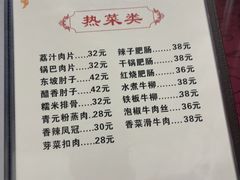 热菜类
荔汁肉片.....32元
锅巴肉片.....32元
东坡肘子.....42元
醋香肘子.....42元
糯米排骨.....32元
青元粉蒸肉...28元
香辣凤冠.....30元
芽菜扣肉.....28元
辣子肥肠.....38元
干锅肥肠.....38元
红烧肥肠.....36元
水煮牛柳.....38元
铁板牛柳.....38元
泡椒牛肉丝...36元
香菜滑牛肉...38元